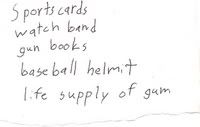 Sports cards
watch band
gun books
baseball helmit
life supply of gum